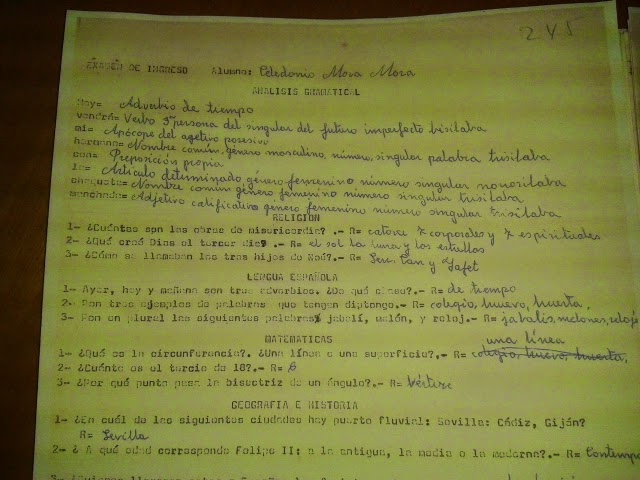 245
EXAMEN DE INGRESO Alumno: Celedonio Mora Mora
ANALISIS GRAMATICAL
Hoy= Adverbio de tiempo
vendrá= Verbo 3ª persona del singular del futuro imperfecto bisilaba
mi= Apócope del agetivo posesivo
hermano= Nombre común, género masculino, número, singular palabra trisilaba
con= Preposición propia
la= Artículo determinado género femenino número singular monosilaba
chaqueta= Nombre común género femenino número singular trisilaba
manchada= Adjetivo calificativo género femenino número singular trisilaba
RELIGION
1- ¿Cuántas son las obras de misericordia? .- R= catorce 7 corporales y 7 espirituales
2- ¿Qué creó Dios el tercer día? .- R= el sol la luna y las estrellas
3- ¿Cómo se llamaban los tres hijos de Noé?.- R= Sem, Can y Jafet
LENGUA ESPAÑOLA
1- Ayer, hoy y mañana son tres adverbios. ¿De qué clase?.- R= de tiempo
2- Pon tres ejemplos de palabras que tengan diptongo.- R= colegio, huevo, huerta,
3- Pon en plural las siguientes palabras: jabalí, melón, y reloj.- R= jabalis, melones, relojes
MATEMATICAS
una línea
1- ¿Qué es la circunferencia?. ¿Una línea o una superficie?.- R= colegio, huevo, huerta,
2- ¿Cuánto es el tercio de 18?.- R= 6
3- ¿Por qué punto pasa la bisectriz de un ángulo?.- R= Vértize
GEOGRAFIA E HISTORIA
1- ¿En cuál de las siguientes ciudades hay puerto fluvial: Sevilla: Cádiz, Gijón?
R= Sevilla
2- ¿ A qué edad corresponde Felipe II: a la antigua, la media o la moderna?.- R= Contemp